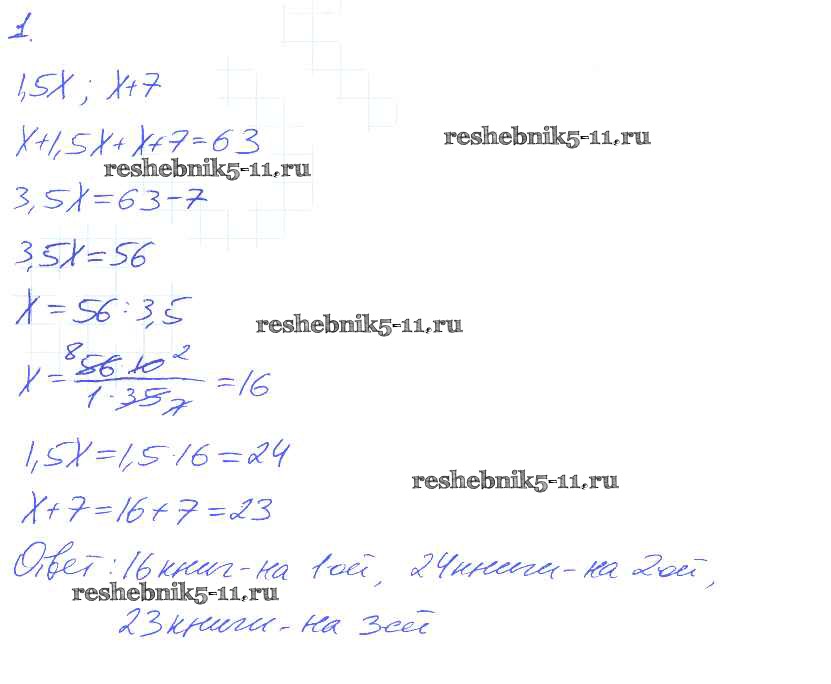 1.
1,5x; x+7
x+1,5x+x+7=63
reshebnik5-11.ru
reshebnik5-11.ru
3,5x=63-7
3,5x=56
x=56:3,5
reshebnik5-11.ru
x= 8 56·10 2 / 1·35 7 =16
1,5x=1,5·16=24
reshebnik5-11.ru
x+7=16+7=23
Ответ: 16 книг-на 1ой, 24 книги-на 2ой,
reshebnik5-11.ru
23 книги-на 3ей